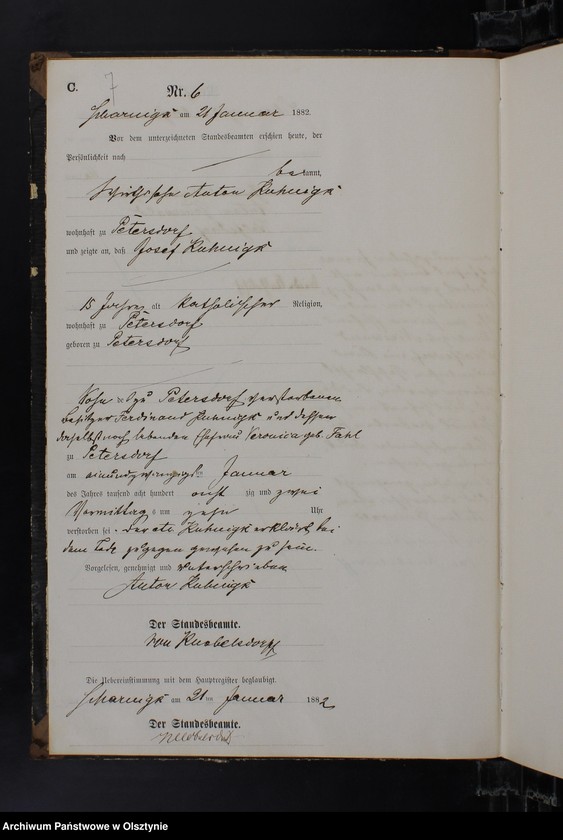 C.
7
Nr. 6
Scharnigk am 21 Januar 1882.
Vor dem unterzeichneten Standesbeamten erschien heute, der
Persönlichkeit nach
bekannt,
Anton Kuhnigk
wohnhaft zu Petersdorf
und zeigte an, daß Josef Kuhnigk
15 Jahre alt katholischer Religion,
wohnhaft zu Petersdorf
geboren zu Petersdorf
Sohn des zu Petersdorf verstorbenen
Besitzer Ferdinand Kuhnigk und dessen
daselbst noch lebenden Ehefrau Veronica geb. Fahl
zu Petersdorf
am einundzwanzigsten Januar
des Jahres tausend acht hundert acht zig und zwei
Vormittags um zehn Uhr
verstorben sei. Der etc. Kuhnigk erklärt bei
dem Tode zugegen gewesen zu sein.
Vorgelesen, genehmigt und unterschrieben
Anton Kuhnigk
Der Standesbeamte.
von Knobelsdorff
Die Uebereinstimmung mit dem Hauptregister beglaubigt.
Scharnigk am 21ten Januar 1882
Der Standesbeamte.
Archiwum Państwowe w Olsztynie